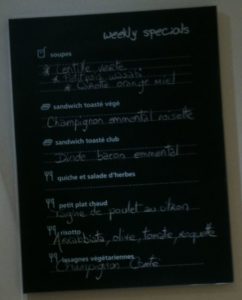 weekly specials
soupes
Lentille verte
Petit pois wasabi
Carotte orange miel
sandwich toasté végé
Champignon emmental noisette
sandwich toasté club
Dinde bacon emmental
quiche et salade d'herbes
petit plat chaud
de poulet au citron
risotto
olive, tomate, roquette
lasagnes végétariennes
Champignon